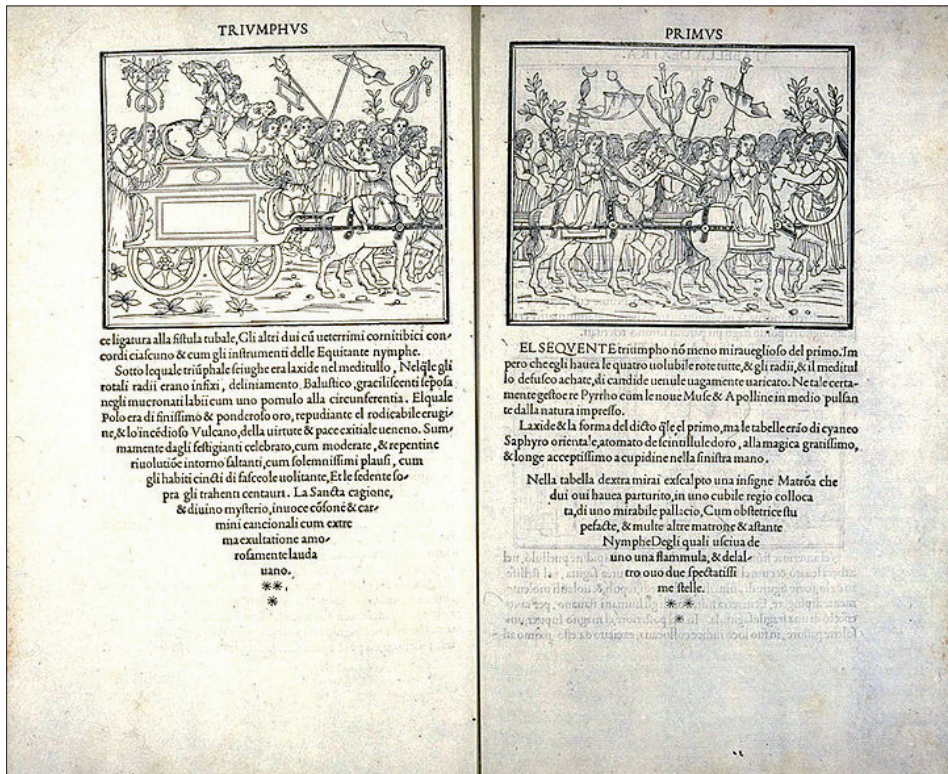 TRIVMPHVS
ce ligatura alla fistula tubale, Gli altri dui cū ueterrimi cornitibici con-
cordi ciascuno & cum gli instrumenti delle Equitante nymphe.
Sotto lequale triūphale seiughe era laxide nel meditullo, Nelq̄le gli
rotali radii erano infixi, deliniamento Balustico, graciliscenti seposa
negli mucronati labii cum uno pomulo alla circunferentia. Elquale
Polo era di finissimo & ponderoso oro, repudiante el rodicabile erugi-
ne, & lo'incēdioso Vulcano, della uirtute & pace exitiale ueneno. Sum-
mamente dagli festigianti celebrato, cum moderate, & repentine
riuolutiōe intorno saltanti, cum solemnissimi plausi, cum
gli habiti cincti di fasceole uolitante, Et le sedente so-
pra gli trahenti centauri. La Sancta cagione,
& diuino mysterio, inuoce cōsone & car-
mini cancionali cum extre
ma exultatione amo-
rosamente lauda
uano.
**
*
PRIMVS
EL SEQVENTE triumpho nō meno miraueglioso del primo. Im
pero che egli hauea le quatro uolubile rote tutte, & gli radii, & il meditul
lo defusco achate, di candide uenule uagamente uaricato. Ne tale certa-
mente gestoe re Pyrrho cum le noue Muse & Apolline in medio pulsan
te dalla natura impresso.
Laxide & la forma del dicto q̄le el primo, ma le tabelle erāo di cyaneo
Saphyro orientale, atomato de scintillule doro, alla magica gratissimo,
& longe acceptissimo a cupidine nella sinistra mano.
Nella tabella dextra mirai exscalpto una insigne Matrōa che
dui oui hauea parturito, in uno cubile regio colloca
ta, di uno mirabile pallacio, Cum obstetrice stu
pefacte, & multe altre matrone & astante
Nymphe Degli quali usciua de
uno una flammula, & delal-
tro ouo due spectatissi
me stelle.
**
*